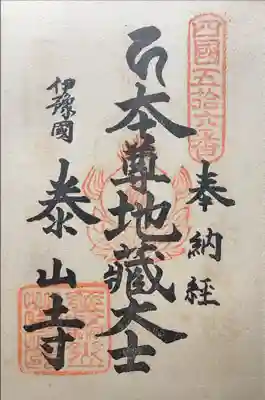 四國五拾六番
奉納経
本尊地蔵大士
伊豫國
泰山寺